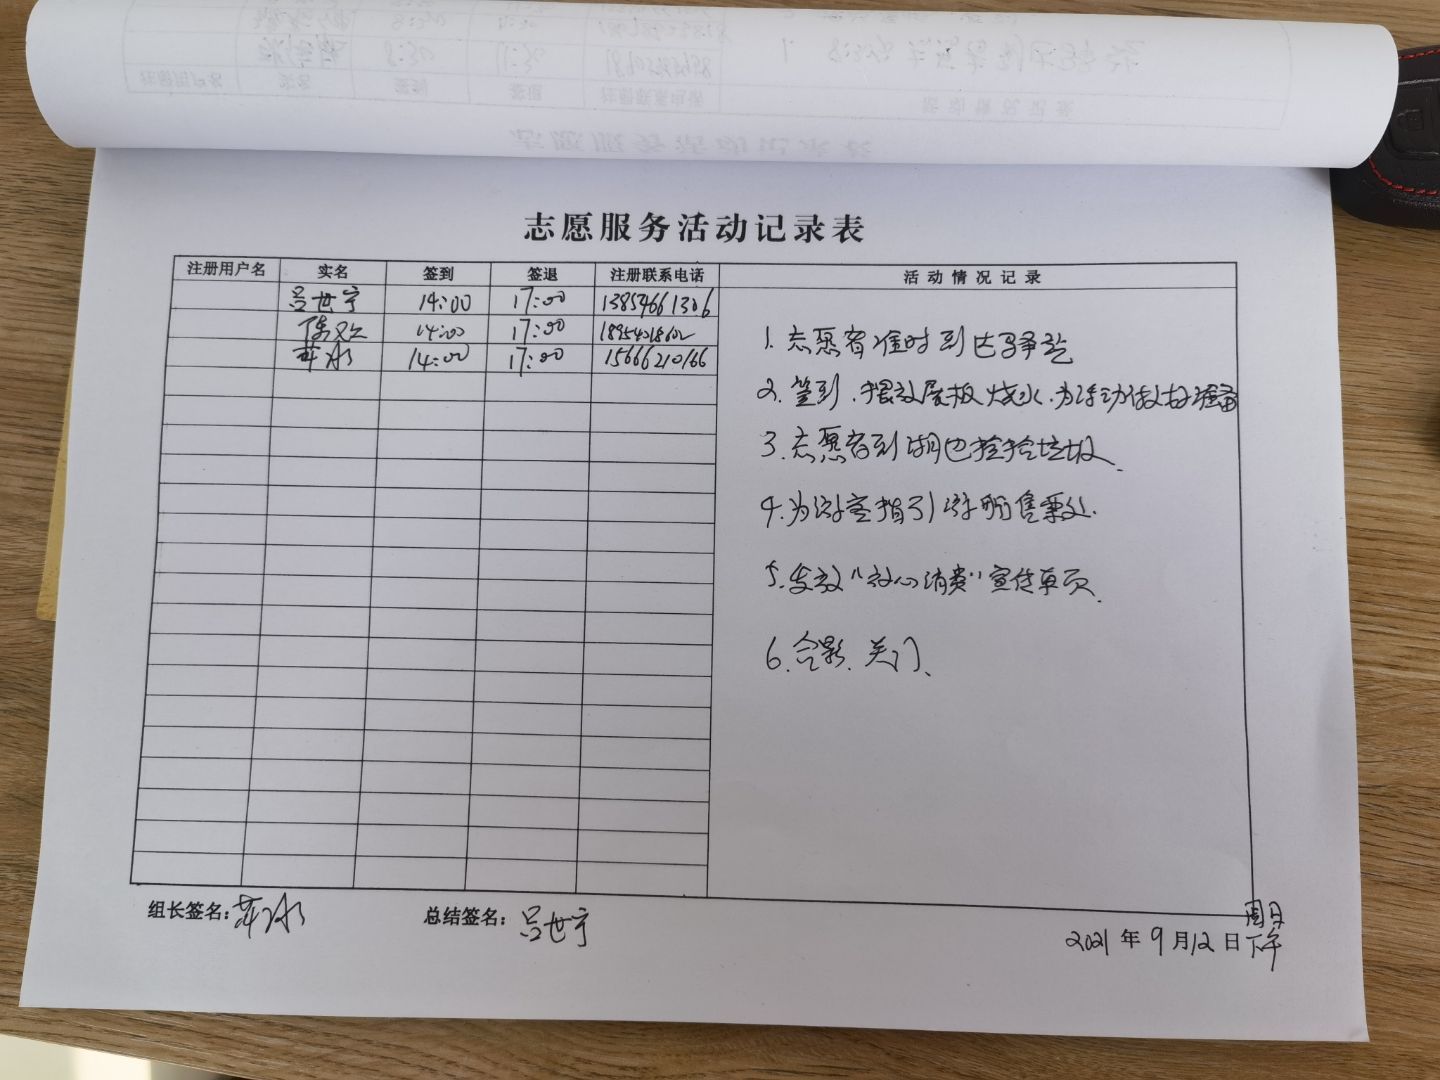 志愿服务活动记录表
注册用户名 实名 签到 签退 注册联系电话 活动情况记录
吕世宇 14:00 17:00 13854661306
14:00 17:00
冰 14:00 17:00 15666210166
1. 志愿者准时到达
2. 签到、摆放展板、烧水、为活动做好准备
3. 志愿者到湖边捡拾垃圾.
4. 为游客指引游船售票处.
5. 发放“放心消费”宣传单页.
6. 合影、关门、
组长签名: 冰 总结签名: 吕世宇
周日
2021年9月12日下午